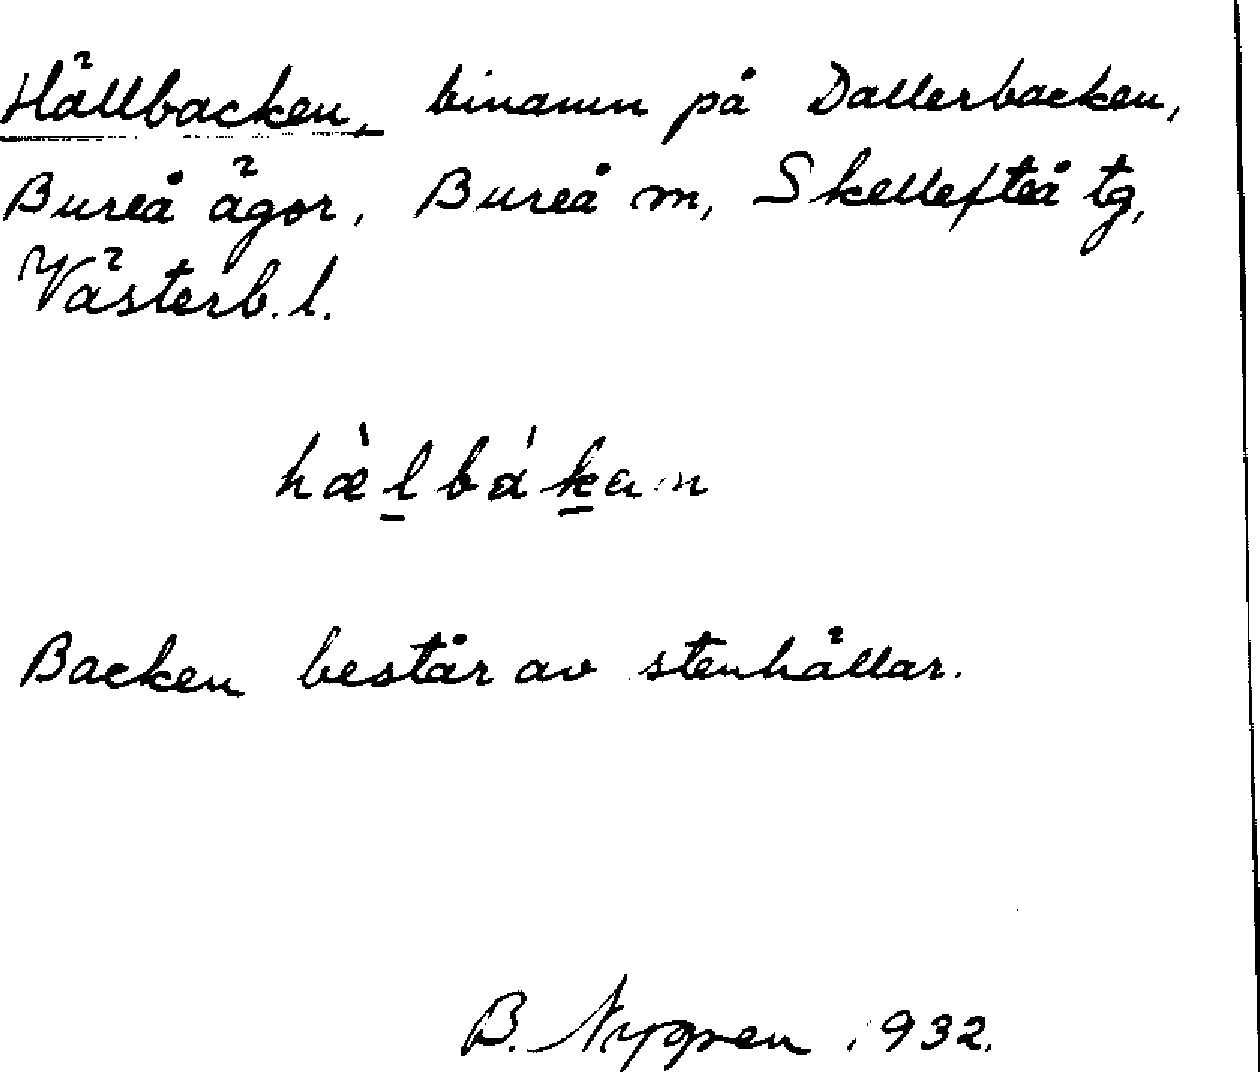 Hällbacken, binamn på Dallerbacken,
Bureå ägor, Bureå m, Skellefteå tg,
Västerb. l.
hæ̀lbákan
Backen består av stenhällar.
B. Nygren 1932.